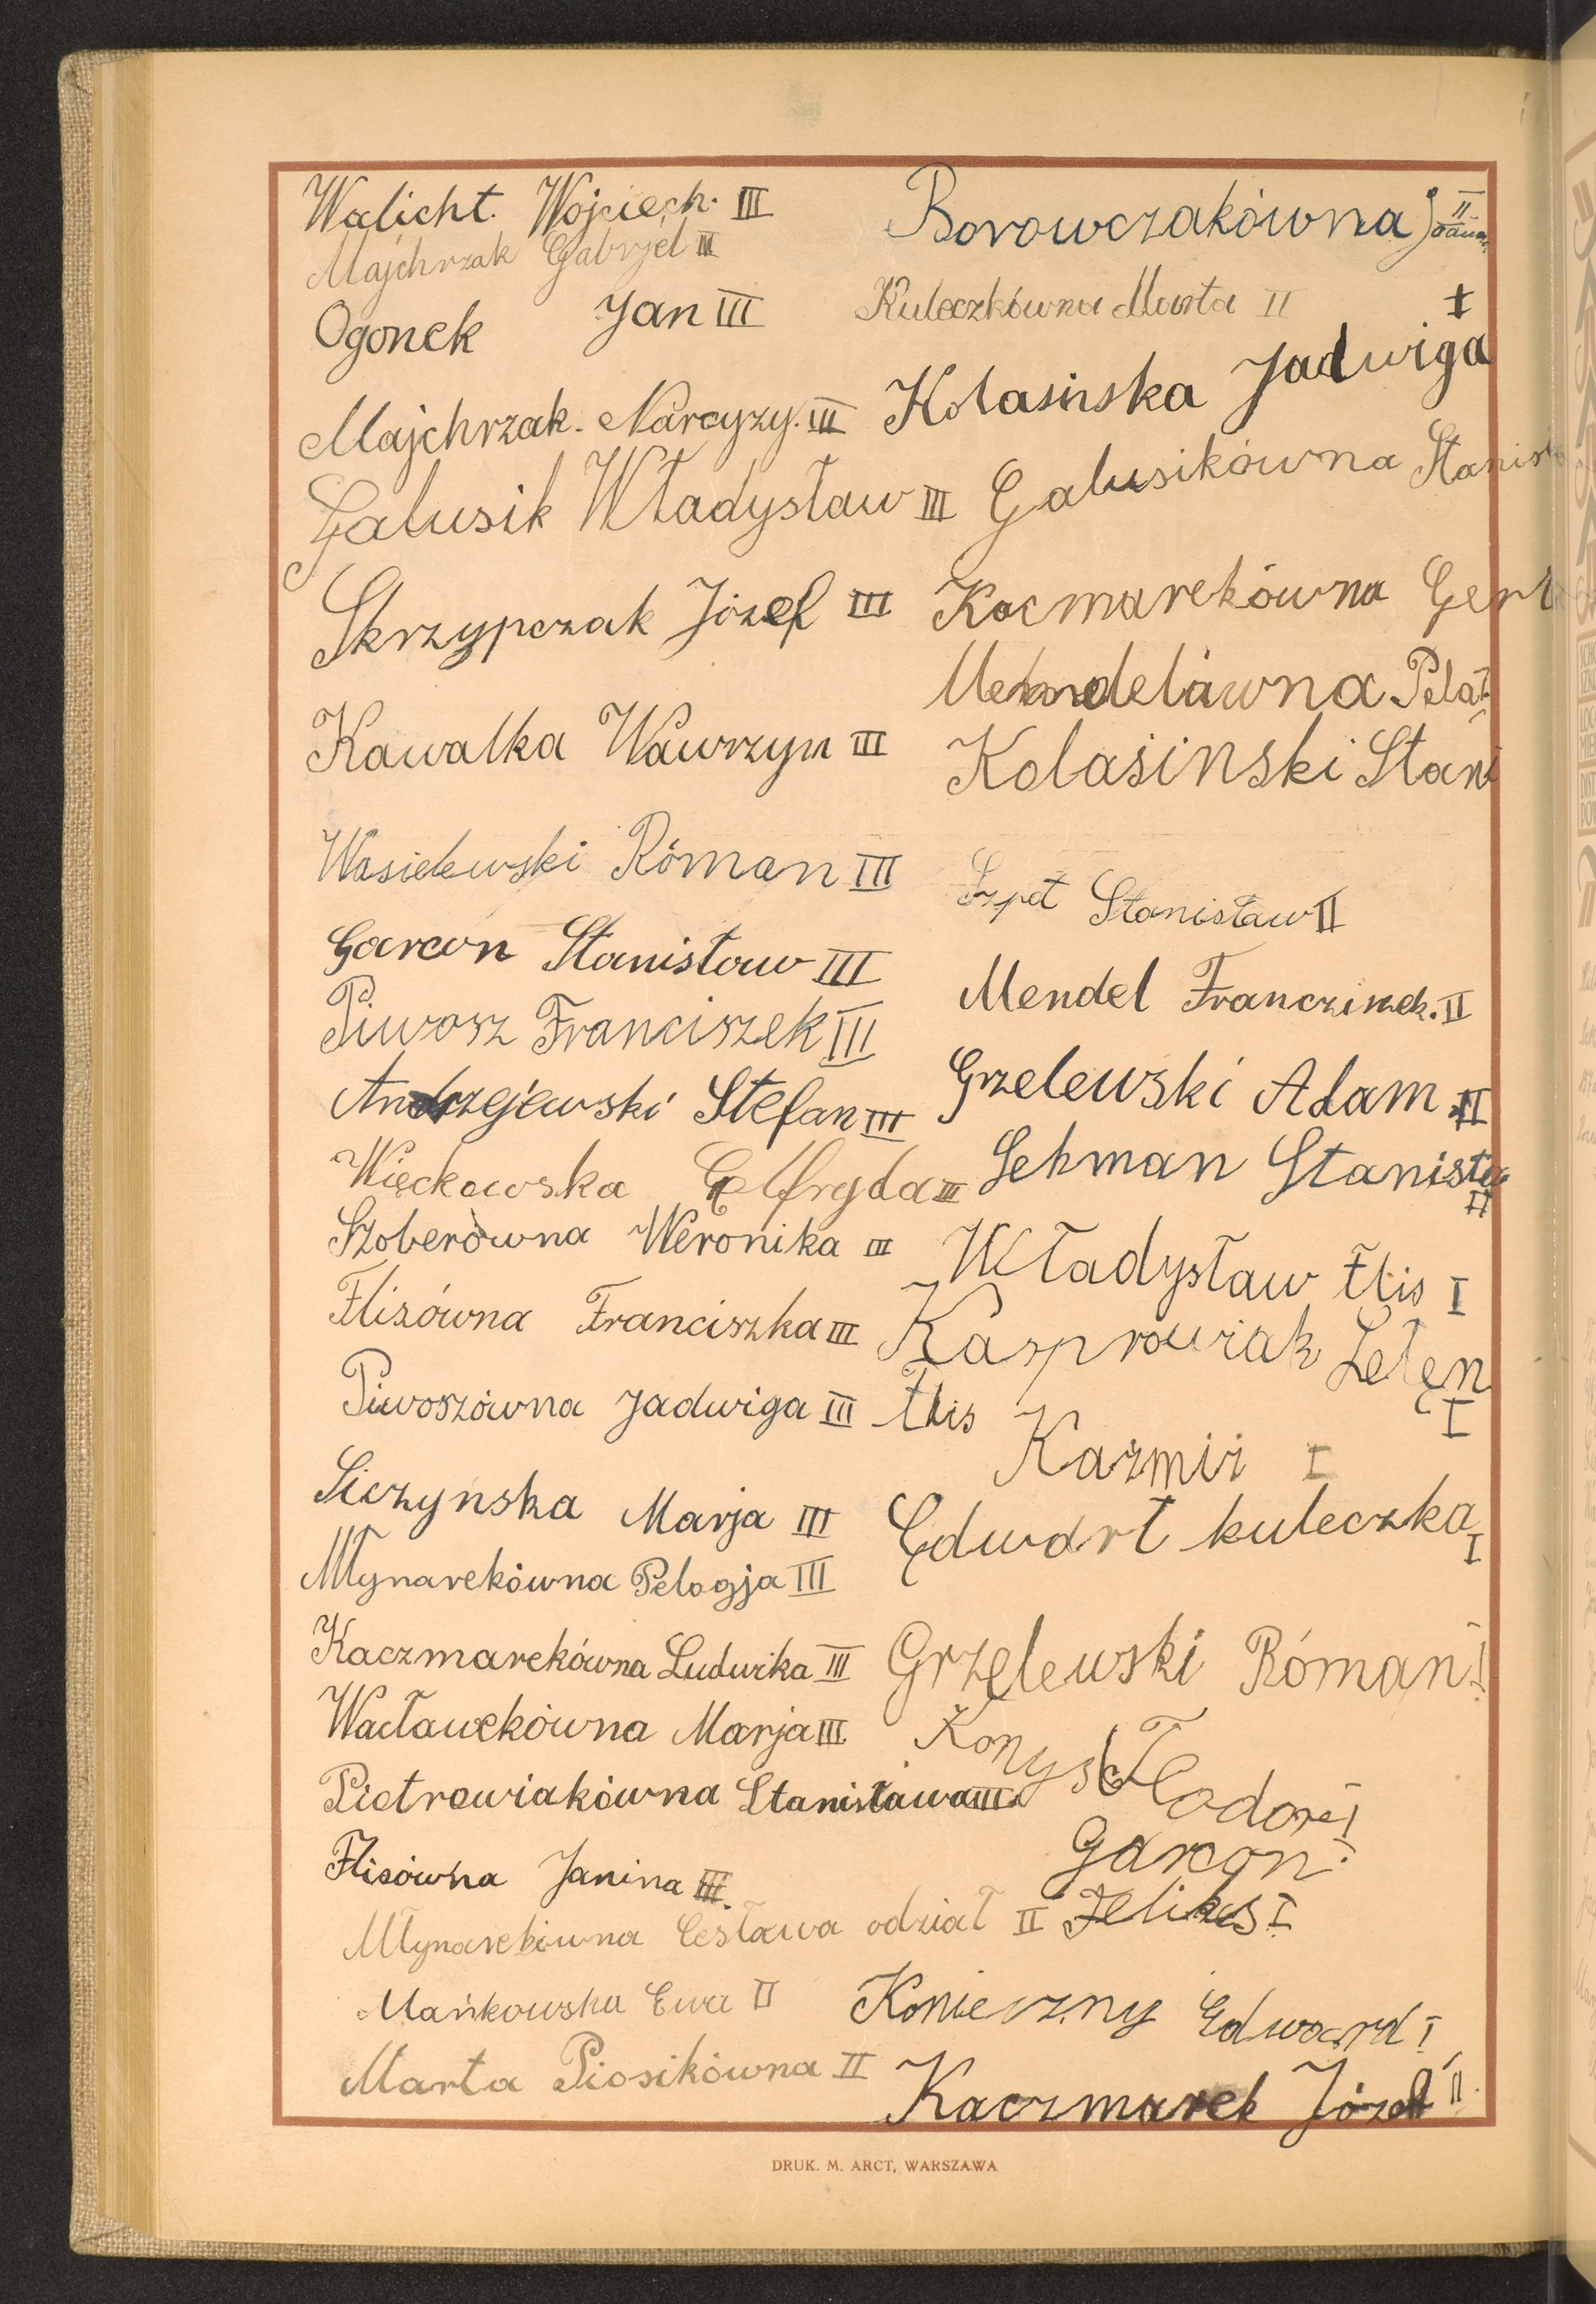 Walicht. Wojciech. III
Majchrzak Gabrjel III
Ogonek Jan III
Majchrzak. Narcyzy. III
Galusik Władysław III
Skrzypczak Józef III
Kawalka Wawrzyn III
Wasielewski Róman III
Garcon Stanisław III
Piwosz Franciszek III
Andrzejewski Stefan III
Więckowska Elfryda III
Szoberówna Weronika III
Flisówna Franciszka III
Piwoszówna Jadwiga III
Siczyńska Marja III
Młynarekówna Pelagja III
Kaczmarekówna Ludwika III
Wacławekówna Marja III
Pietrowiakówna Stanisława III
Flisówna Janina III
Młynarekówna Cesława odział II
Mańkowska Ewa II
Marta Piosikówna II
Borowczakówna Joanna II
Kuleczkówna Marta II
Kolasinska Jadwiga I
Galusikówna Stanisł
Kocmarekówna Gert
Kolasinski Stani
Szpt Stanisław II
Mendel Franciszek. II
Grzelewski Adam II
Lehman Stanisła II
Władysław Flis I
Kasprowiak I
Flis Kazmir I
Edwart kuleczka I
Grzelewski Róman I
Teodor I
Garcon
Feliks I
Konieczny Edward I
Kaczmarek Józef II
DRUK. M. ARCT, WARSZAWA